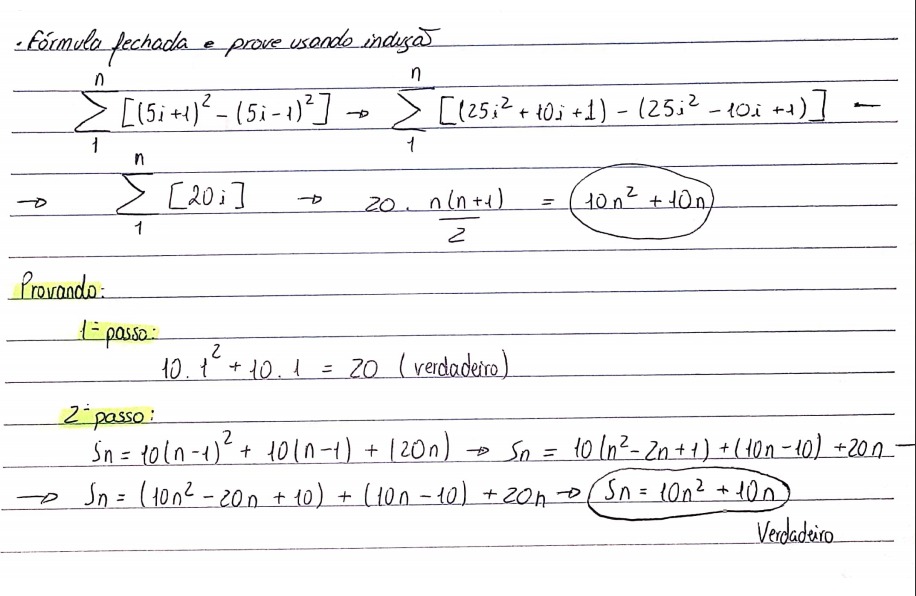 . Fórmula fechada e prove usando indução
n n
∑ [(5i+1)² - (5i-1)²] → ∑ [(25i² + 10i + 1) - (25i² - 10i + 1)] -
1 1
n
→ ∑ [20i] → 20 . n(n+1)/2 = 10n² + 10n
1
Provando:
1º passo:
10.1² + 10.1 = 20 (verdadeiro)
2º passo:
Sn = 10(n-1)² + 10(n-1) + (20n) → Sn = 10(n² - 2n + 1) + (10n - 10) + 20n -
→ Sn = (10n² - 20n + 10) + (10n - 10) + 20n → Sn = 10n² + 10n
Verdadeiro